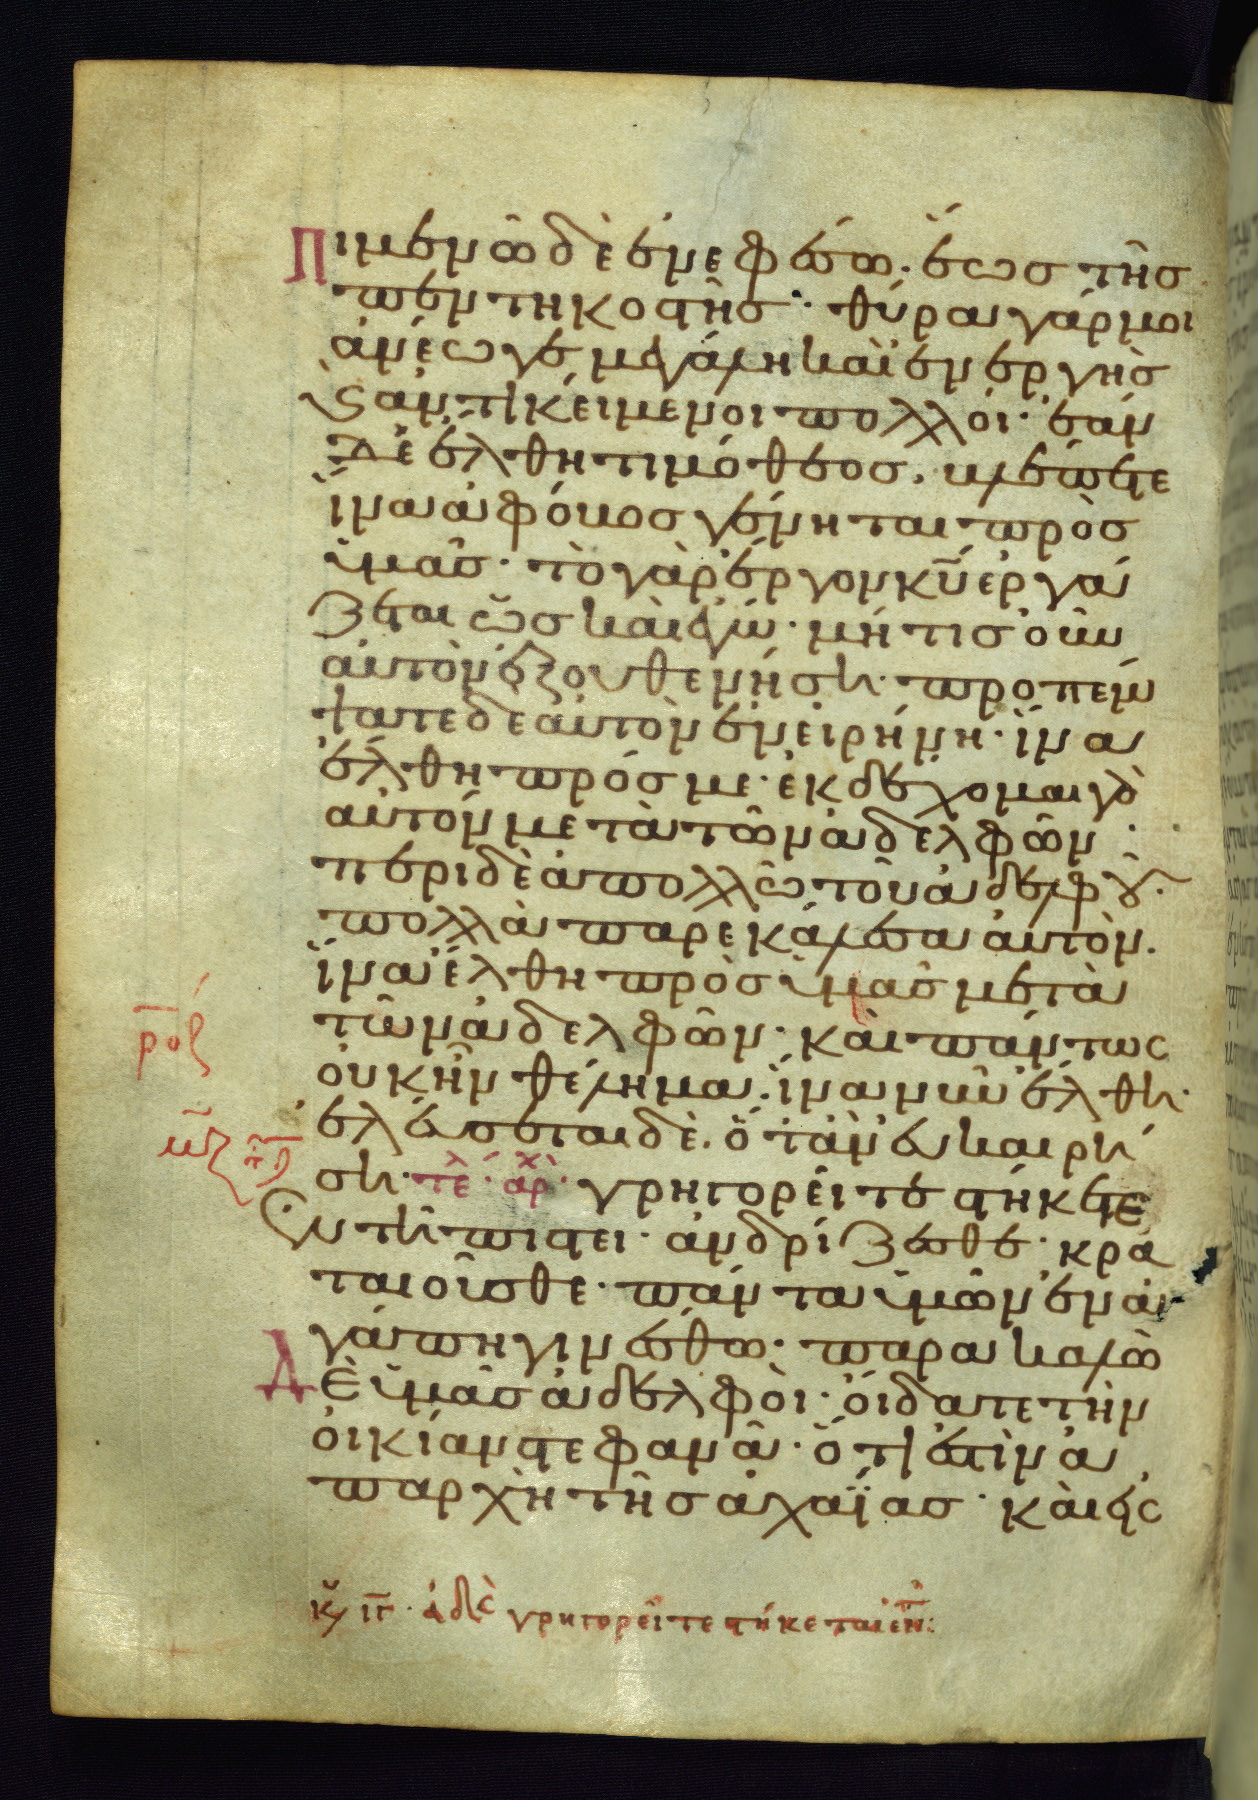 Πιμενῶ δὲ ἐν ἐφέσω· ἕως τῆς
πεντηκοστῆς· θύρα γάρ μοι
ἀνέωγε μεγάλη καὶ ἐνεργὴς
ϗ ἀντικείμενοι πολλοί· ἐὰν
δὲ ἔλθη τιμόθεος. βλέπετε
ἵνα ἀφόβως γένηται πρὸς
ὑμᾶς· τὸ γὰρ ἔργον κῡ ἐργά
ζεται ὡς καὶ ἐγώ· μή τις οὖν
αὐτὸν ἐξουθενήση· προπέμ
ψατε δὲ αὐτὸν ἐν εἰρήνη· ἵνα
ἔλθη πρός με· ἐκδέχομαι γὰρ
αὐτὸν μετὰ τῶν ἀδελφῶν·
περὶ δὲ ἀπολλῶ τοῦ ἀδελφοῦ·
πολλὰ παρεκάλεσα αὐτὸν.
ἵνα ἔλθη πρὸς ὑμᾶς μετὰ
τῶν ἀδελφῶν· καὶ πάντως
οὐκ ἦν θέλημα. ἵνα νῦν ἔλθη·
ἐλεύσεται δὲ. ὅταν εὐκαιρή
ση· τε ἀρχ γρηγορεῖτε στήκετε
ἐν τῆ πίστει· ἀνδρίζεσθε· κρα
ταιοῦσθε· πάντα ὑμῶν ἐν ἀ
γάπη γινέσθω· παρακαλῶ
Δὲ ὑμᾶς ἀδελφοὶ· οἴδατε τὴν
οἰκίαν στεφανᾶ· ὅτι ἐστὶν ἀ
παρχὴ τῆς ἀχαΐας· καὶ εἰς
ἀδὲ γρηγορεῖτε στήκετε ἐν